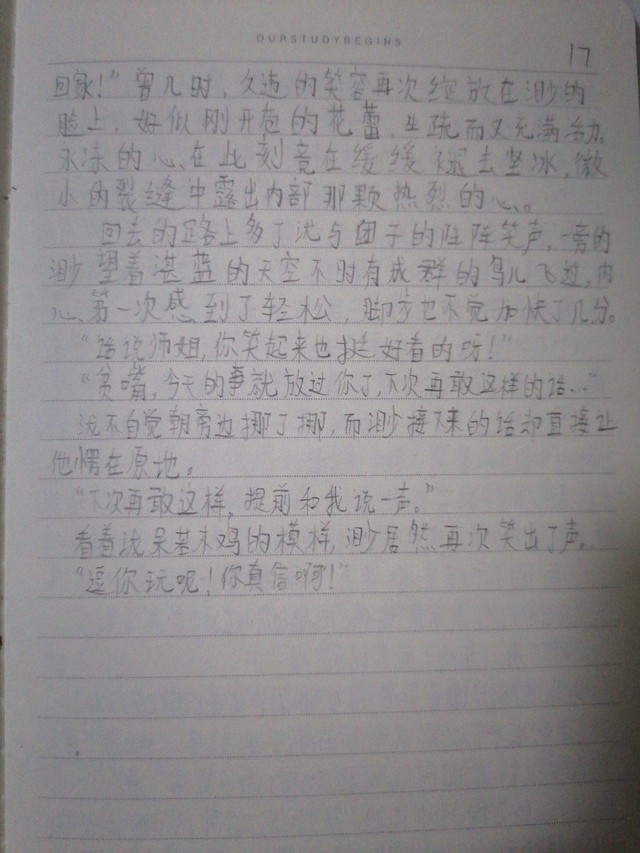 OURSTUDYBEGINS
17
回家!”曾几时，久违的笑容再次绽放在渺的
脸上，好似刚开苞的花蕾，生疏而又充满活力。
永冻的心、在此刻竟在缓缓褪去坚冰，微
小的裂缝中露出内部那颗热烈的心。
回去的路上多了沈与团子的阵阵笑声，一旁的
渺望着湛蓝的天空不时有成群的鸟儿飞过，内
心第一次感到了轻松，脚步也不觉加快了几分。
“话说师姐，你笑起来也挺好看的呀!”
“贫嘴，今天的事就放过你了，下次再敢这样的话...”
沈不自觉朝旁边挪了挪，而渺接下来的话却直接让
他愣在原地。
“下次再敢这样，提前和我说一声。”
看着沈呆若木鸡的模样，渺居然再次笑出了声。
“逗你玩呢!你真信啊!”